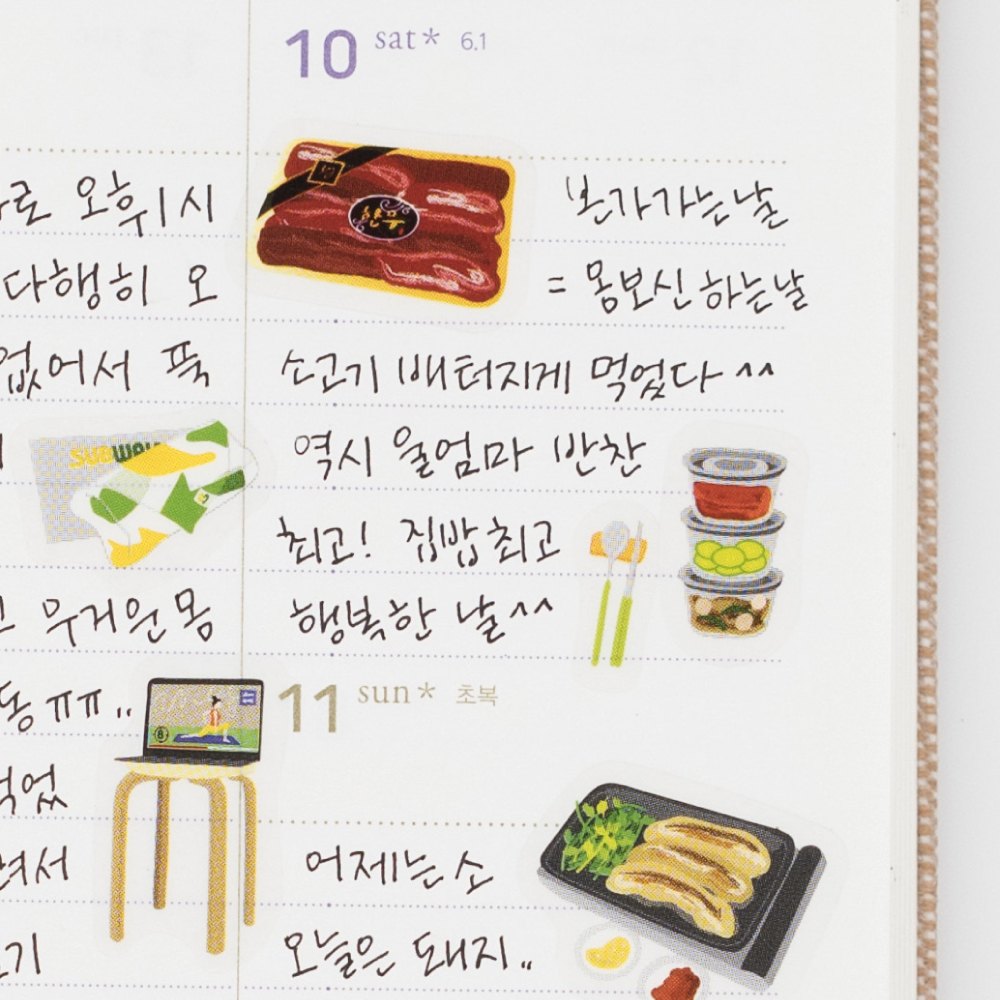 로 오휘 시
다행히 오
없어서 푹
SUBWAY
무거운 몸
동 ㅠㅠ..
먹었
려서
기
10 sat* 6.1
한우
본가 가는 날
= 몸보신 하는 날
소고기 배터지게 먹었다 ^^
역시 울엄마 반찬
최고! 집밥 최고
행복한 날 ^^
11 sun* 초복
어제는 소
오늘은 돼지..